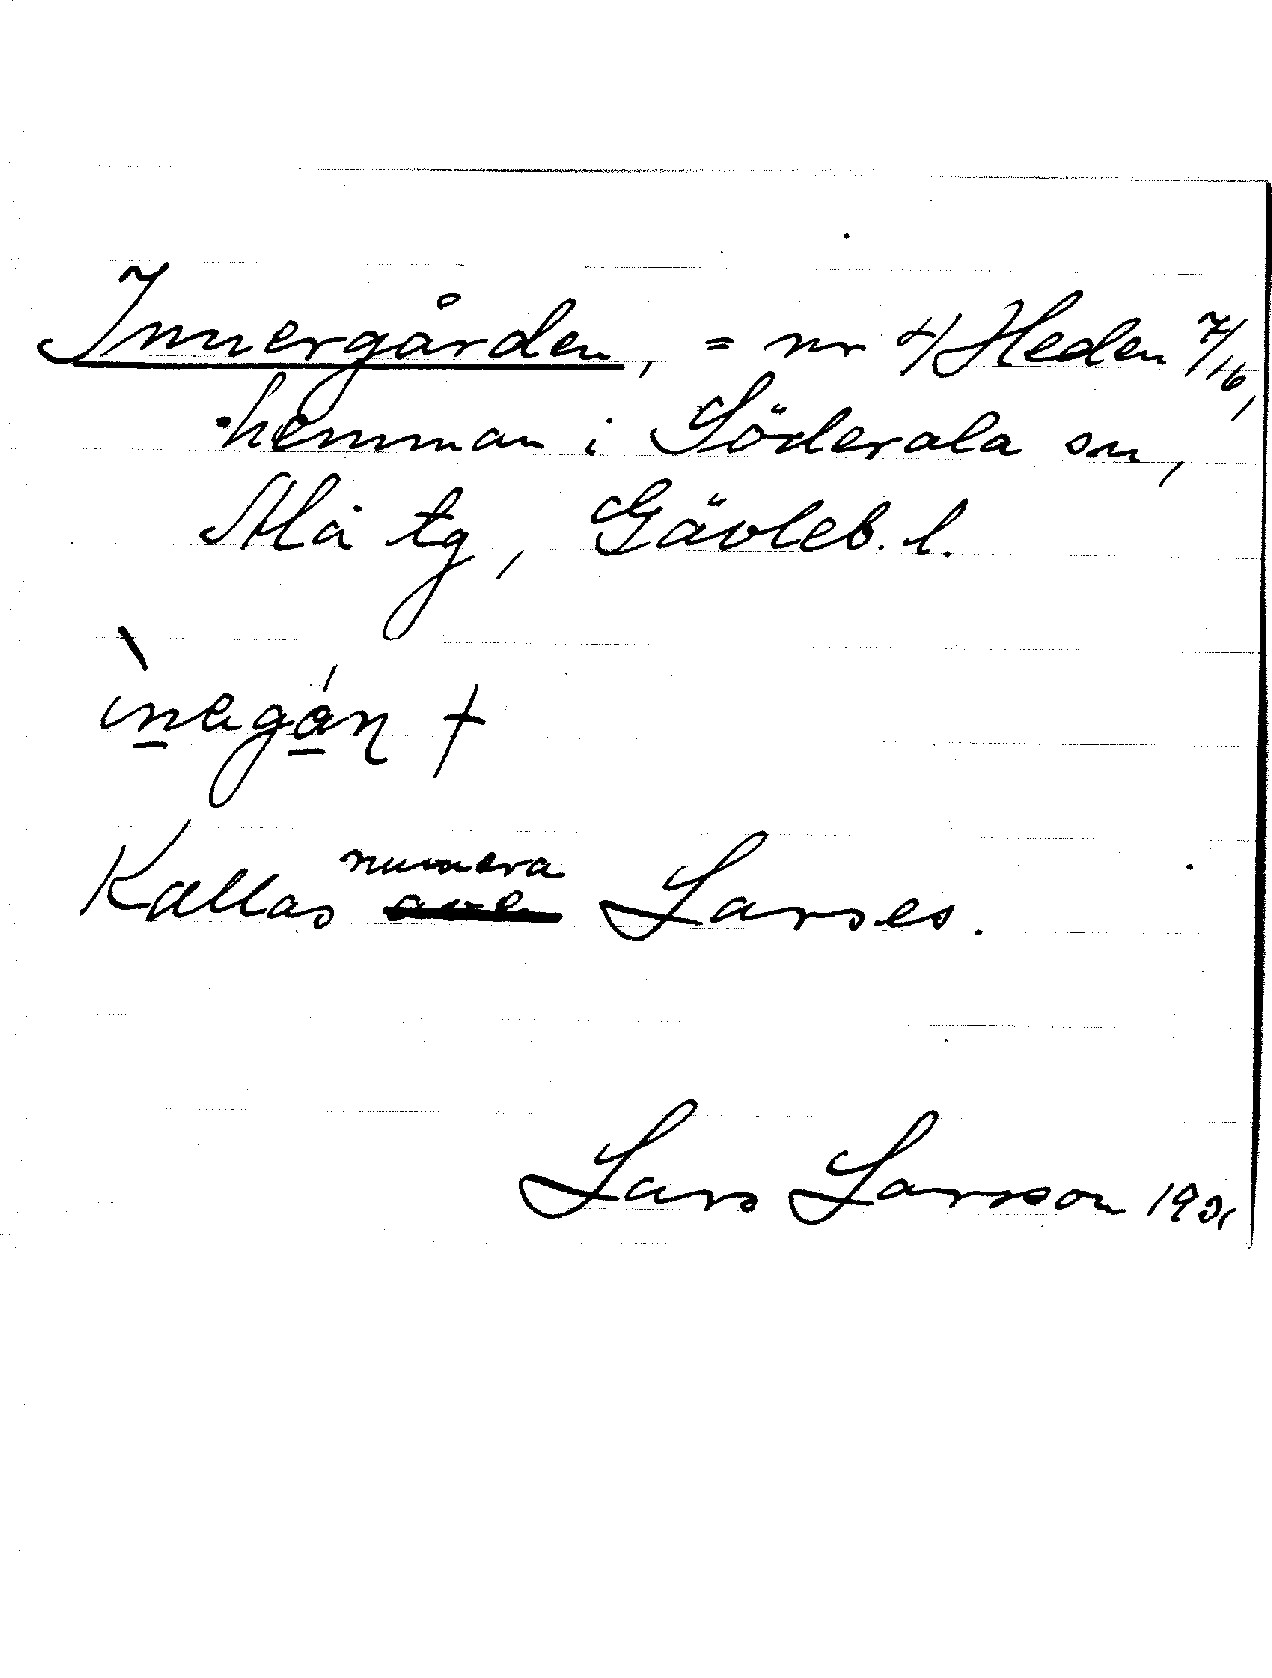 Innergården, = nr 4 Heden 7/16,
hemman i Söderala sn,
Ala tg, Gävleb. l.
ìnegán +
Kallas numera Larses.
Lars Larsson